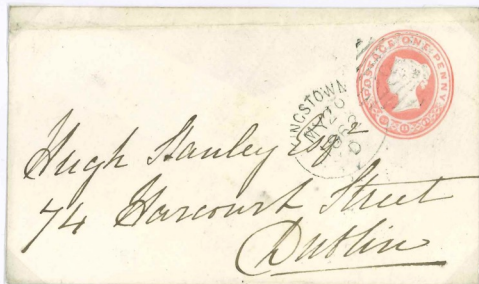 POSTAGE ONE PENNY
KINGSTOWN
MY 20
Hugh Hanley Esqr
74 Harcourt Street
Dublin